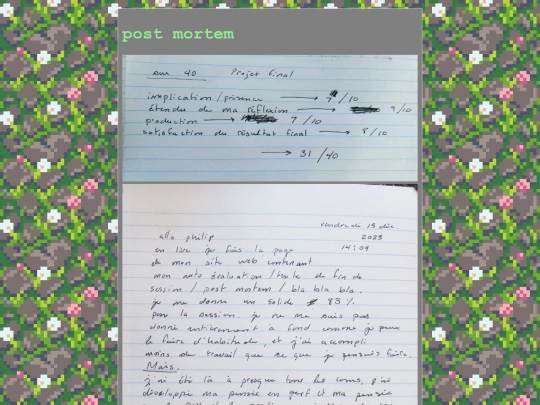 post mortem
sur 40 Projet final
implication/présence → 7/10
Étendue de ma réflexion → 9/10
production → 7/10
satisfaction du résultat final → 8/10
→ 31/40
vendredi 15 déc.
allo philip 2023
en live je fais la page 14:09
de mon site web contenant
mon auto évaluation/texte de fin de
session/post mortem/bla bla bla.
je me donne un solide 83%
pour la session. je ne me suis pas
donné entièrement à fond comme je peux
le faire d'habitude, et j'ai accompli
moins de travail que ce que je pensais faire.
Mais.
j'ai été là à presque tous les cours, j'ai
développé ma pensée en